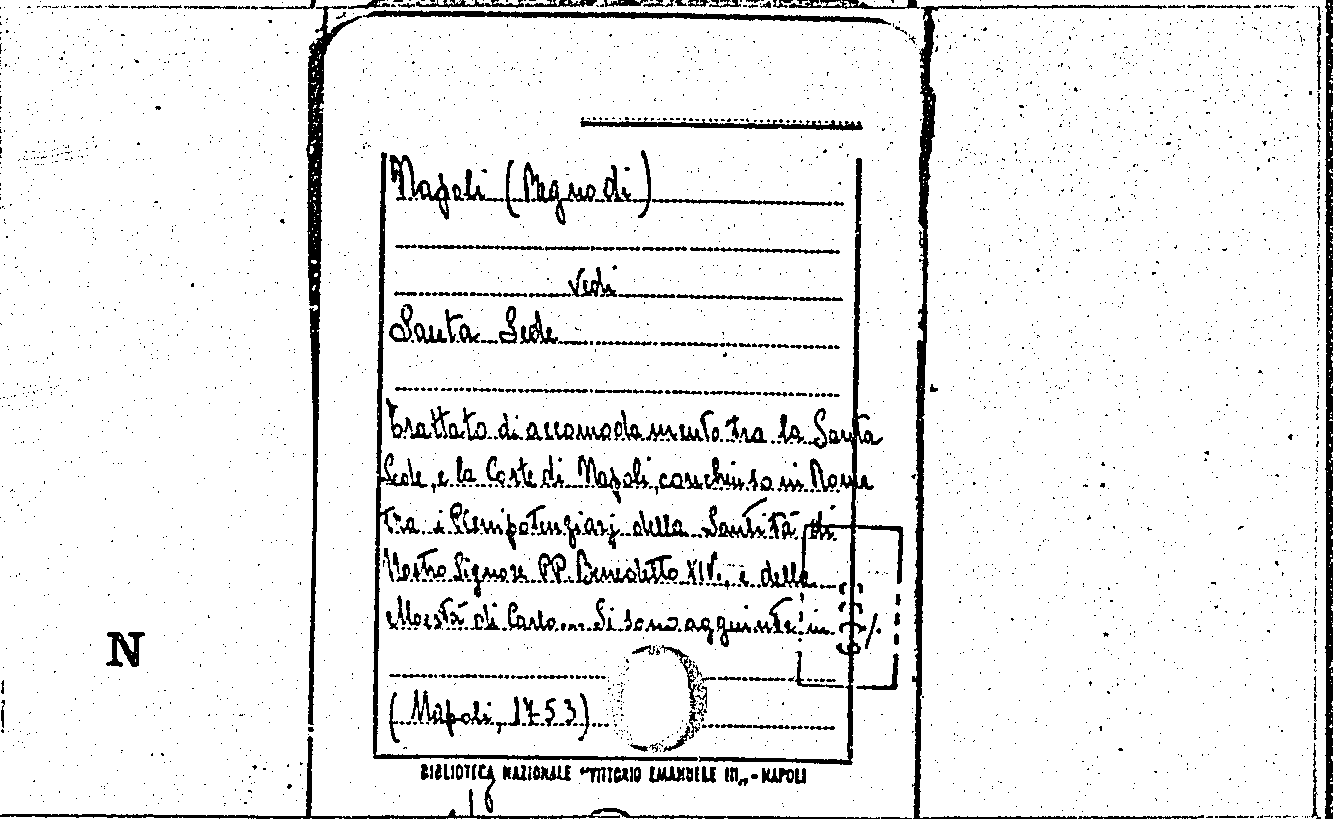 Napoli (Regno di)
vedi
Santa Sede
Trattato di accomodamento tra la Santa
Sede, e la Corte di Napoli, conchiuso in Roma
tra i Plenipotenziarj della Santità di
Nostro Signore PP. Benedetto XIV, e della
Maestà di Carlo... Si sono aggiunte in
N
(Napoli, 1753)
BIBLIOTECA NAZIONALE "VITTORIO EMANUELE III„ - NAPOLI